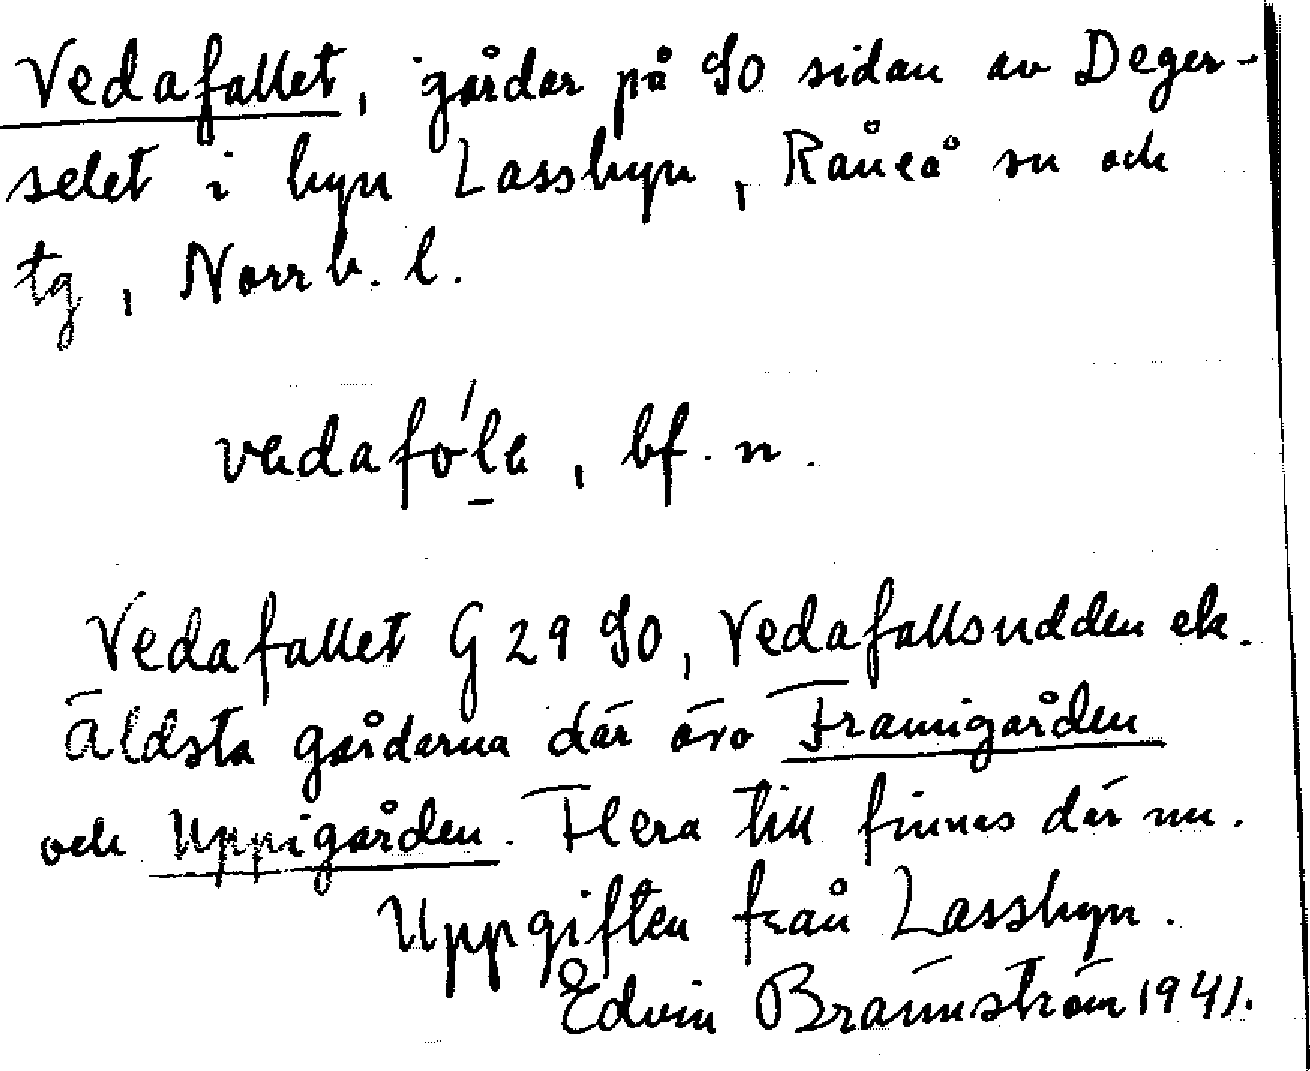 Vedafallet, gårdar på SO sidan av Deger-
selet i byn Lassbyn, Råneå sn och
tg, Norrb. l.
vedafóle, bf. n.
Vedafallet G 29 SO, Vedafallsudden ek.
Äldsta gårdarna där äro Framigården
och Uppigården. Flera till finnas där nu.
Uppgiften från Lassbyn.
Edvin Brännström 1941.